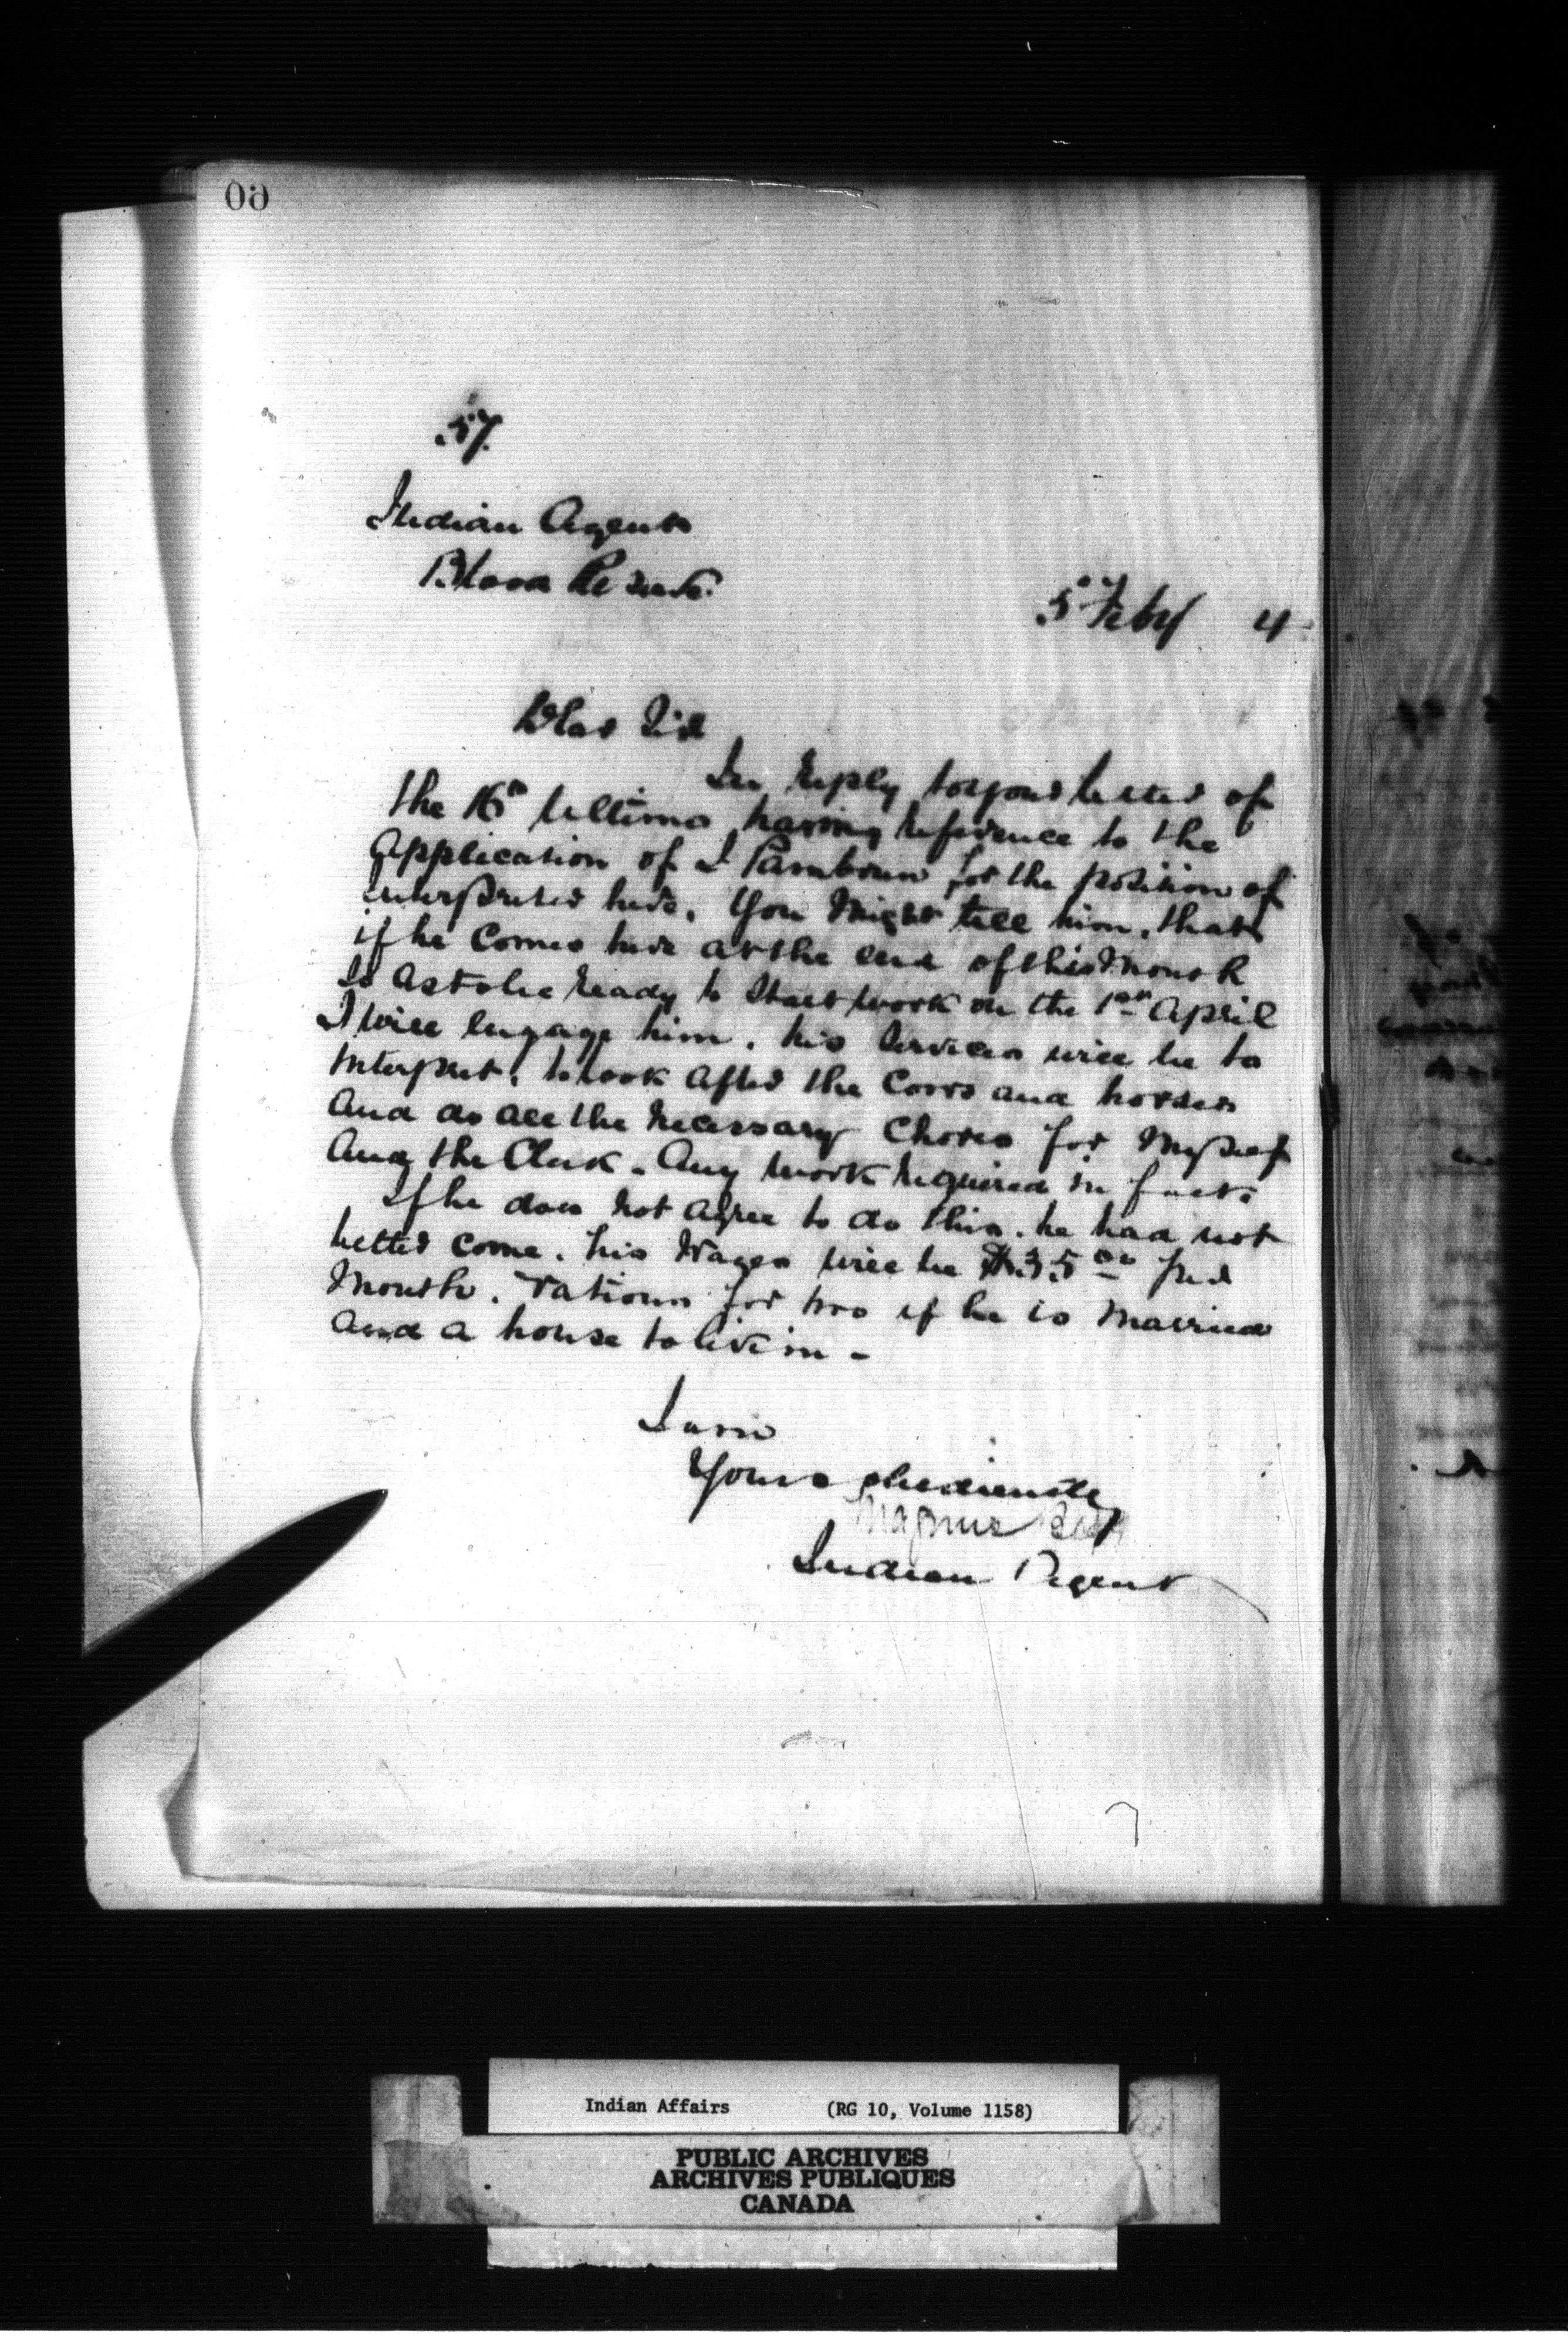 60
57.
Indian Agent
Blood Reserve.
5 Feby 4
Dear Sir
In reply to your letter of
the 16th Ultimo having reference to the
Application of I Pambrun for the position of
interpreter here. You Might tell him, that
if he Comes here at the end of this Month
So as to be ready to Start work on the 1st April
I will engage him. his Services will be to
Interpret, to look after the Cows and horses
And do all the necessary Chores for Myself
And the Clerk. Any work required in fact.
If he does not agree to do this. he had not
better come. his Wages will be $35.00 per
Month. rations for two if he is Married
And a house to live in -
I am
Yours obediently
Magnus Begg
Indian Agent
Indian Affairs (RG 10, Volume 1158)
PUBLIC ARCHIVES
ARCHIVES PUBLIQUES
CANADA